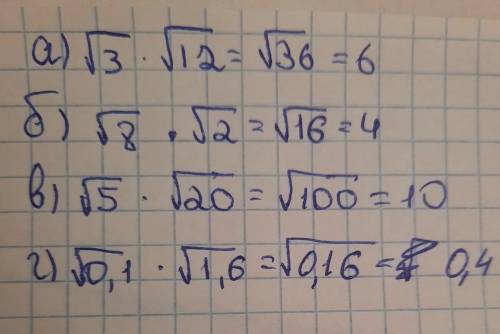 а) √3 · √12 = √36 = 6
б) √8 · √2 = √16 = 4
в) √5 · √20 = √100 = 10
г) √0,1 · √1,6 = √0,16 = 0,4